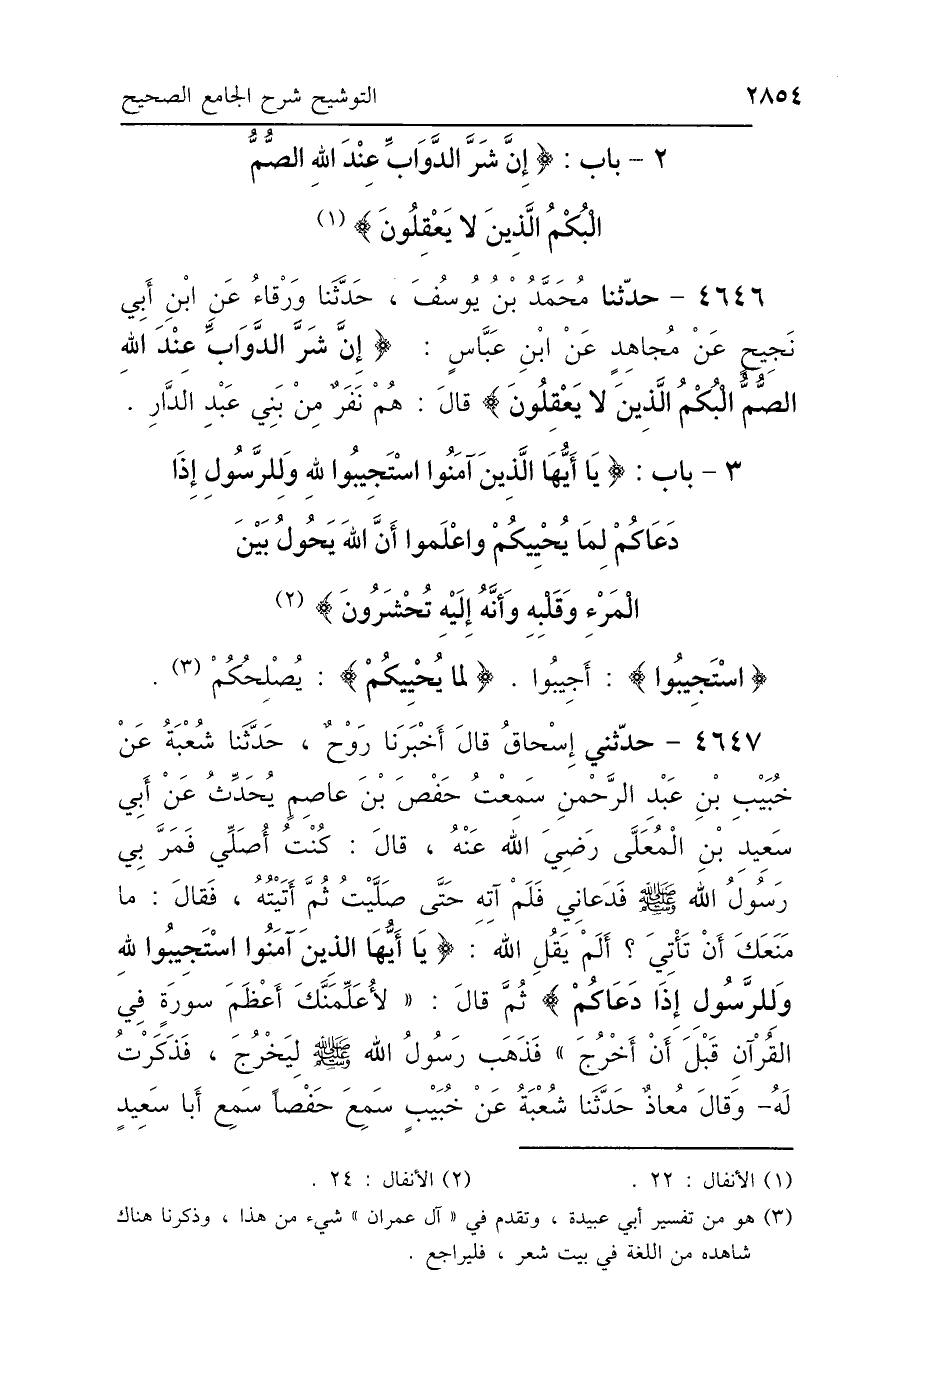 ٢٨٥٤ التوشيح شرح الجامع الصحيح
٢ - باب : ﴿ إِنَّ شَرَّ الدَّوَابِّ عِنْدَ اللهِ الصُّمُّ
الْبُكْمُ الَّذِينَ لا يَعْقِلُونَ ﴾ (١)
٤٦٤٦ - حدّثنا مُحَمَّدُ بْنُ يُوسُفَ ، حَدَّثَنا وَرْقاءُ عَنِ ابْنِ أَبي
نَجِيحٍ عَنْ مُجاهِدٍ عَنْ ابْنِ عَبَّاسٍ : ﴿ إِنَّ شَرَّ الدَّوَابِّ عِنْدَ اللهِ
الصُّمُّ الْبُكْمُ الَّذِينَ لا يَعْقِلُونَ ﴾ قالَ : هُمْ نَفَرٌ مِنْ بَنِي عَبْدِ الدَّارِ .
٣ - باب : ﴿ يَا أَيُّهَا الَّذِينَ آمَنُوا اسْتَجِيبُوا للهِ وَلِلرَّسُولِ إِذَا
دَعَاكُمْ لِمَا يُحْيِيكُمْ واعْلَموا أَنَّ اللهَ يَحُولُ بَيْنَ
الْمَرْءِ وَقَلْبِهِ وَأَنَّهُ إِلَيْهِ تُحْشَرُونَ ﴾ (٢)
﴿ اسْتَجِيبُوا ﴾ : أَجِيبُوا . ﴿ لما يُحْيِيكُمْ ﴾ : يُصْلِحُكُمْ (٣) .
٤٦٤٧ - حدّثني إِسْحاقُ قالَ أَخْبَرَنا رَوْحٌ ، حَدَّثَنا شُعْبَةُ عَنْ
خُبَيْبِ بْنِ عَبْدِ الرَّحْمنِ سَمِعْتُ حَفْصَ بْنَ عاصِمٍ يُحَدِّثُ عَنْ أَبي
سَعِيدِ بْنِ الْمُعَلَّى رَضِيَ اللهُ عَنْهُ ، قالَ : كُنْتُ أُصَلِّي فَمَرَّ بي
رَسُولُ اللهِ ﷺ فَدَعاني فَلَمْ آتِهِ حَتَّى صَلَّيْتُ ثُمَّ أَتَيْتُهُ ، فَقالَ : ما
مَنَعَكَ أَنْ تَأْتيَ ؟ أَلَمْ يَقُلِ اللهُ : ﴿ يَا أَيُّهَا الذينَ آمَنُوا اسْتَجِيبُوا للهِ
وَلِلرَّسُولِ إِذَا دَعَاكُمْ ﴾ ثُمَّ قالَ : « لأُعَلِّمَنَّكَ أَعْظَمَ سورَةٍ في
القُرْآنِ قَبْلَ أَنْ أَخْرُجَ » فَذَهَبَ رَسُولُ اللهِ ﷺ لِيَخْرُجَ ، فَذَكَرْتُ
لَهُ- وَقالَ مُعاذٌ حَدَّثَنا شُعْبَةُ عَنْ خُبَيْبٍ سَمِعَ حَفْصاً سَمِعَ أَبا سَعِيدٍ
(١) الأنفال : ٢٢ . (٢) الأنفال : ٢٤ .
(٣) هو من تفسير أبي عبيدة ، وتقدم في « آل عمران » شيء من هذا ، وذكرنا هناك
شاهده من اللغة في بيت شعر ، فليراجع .